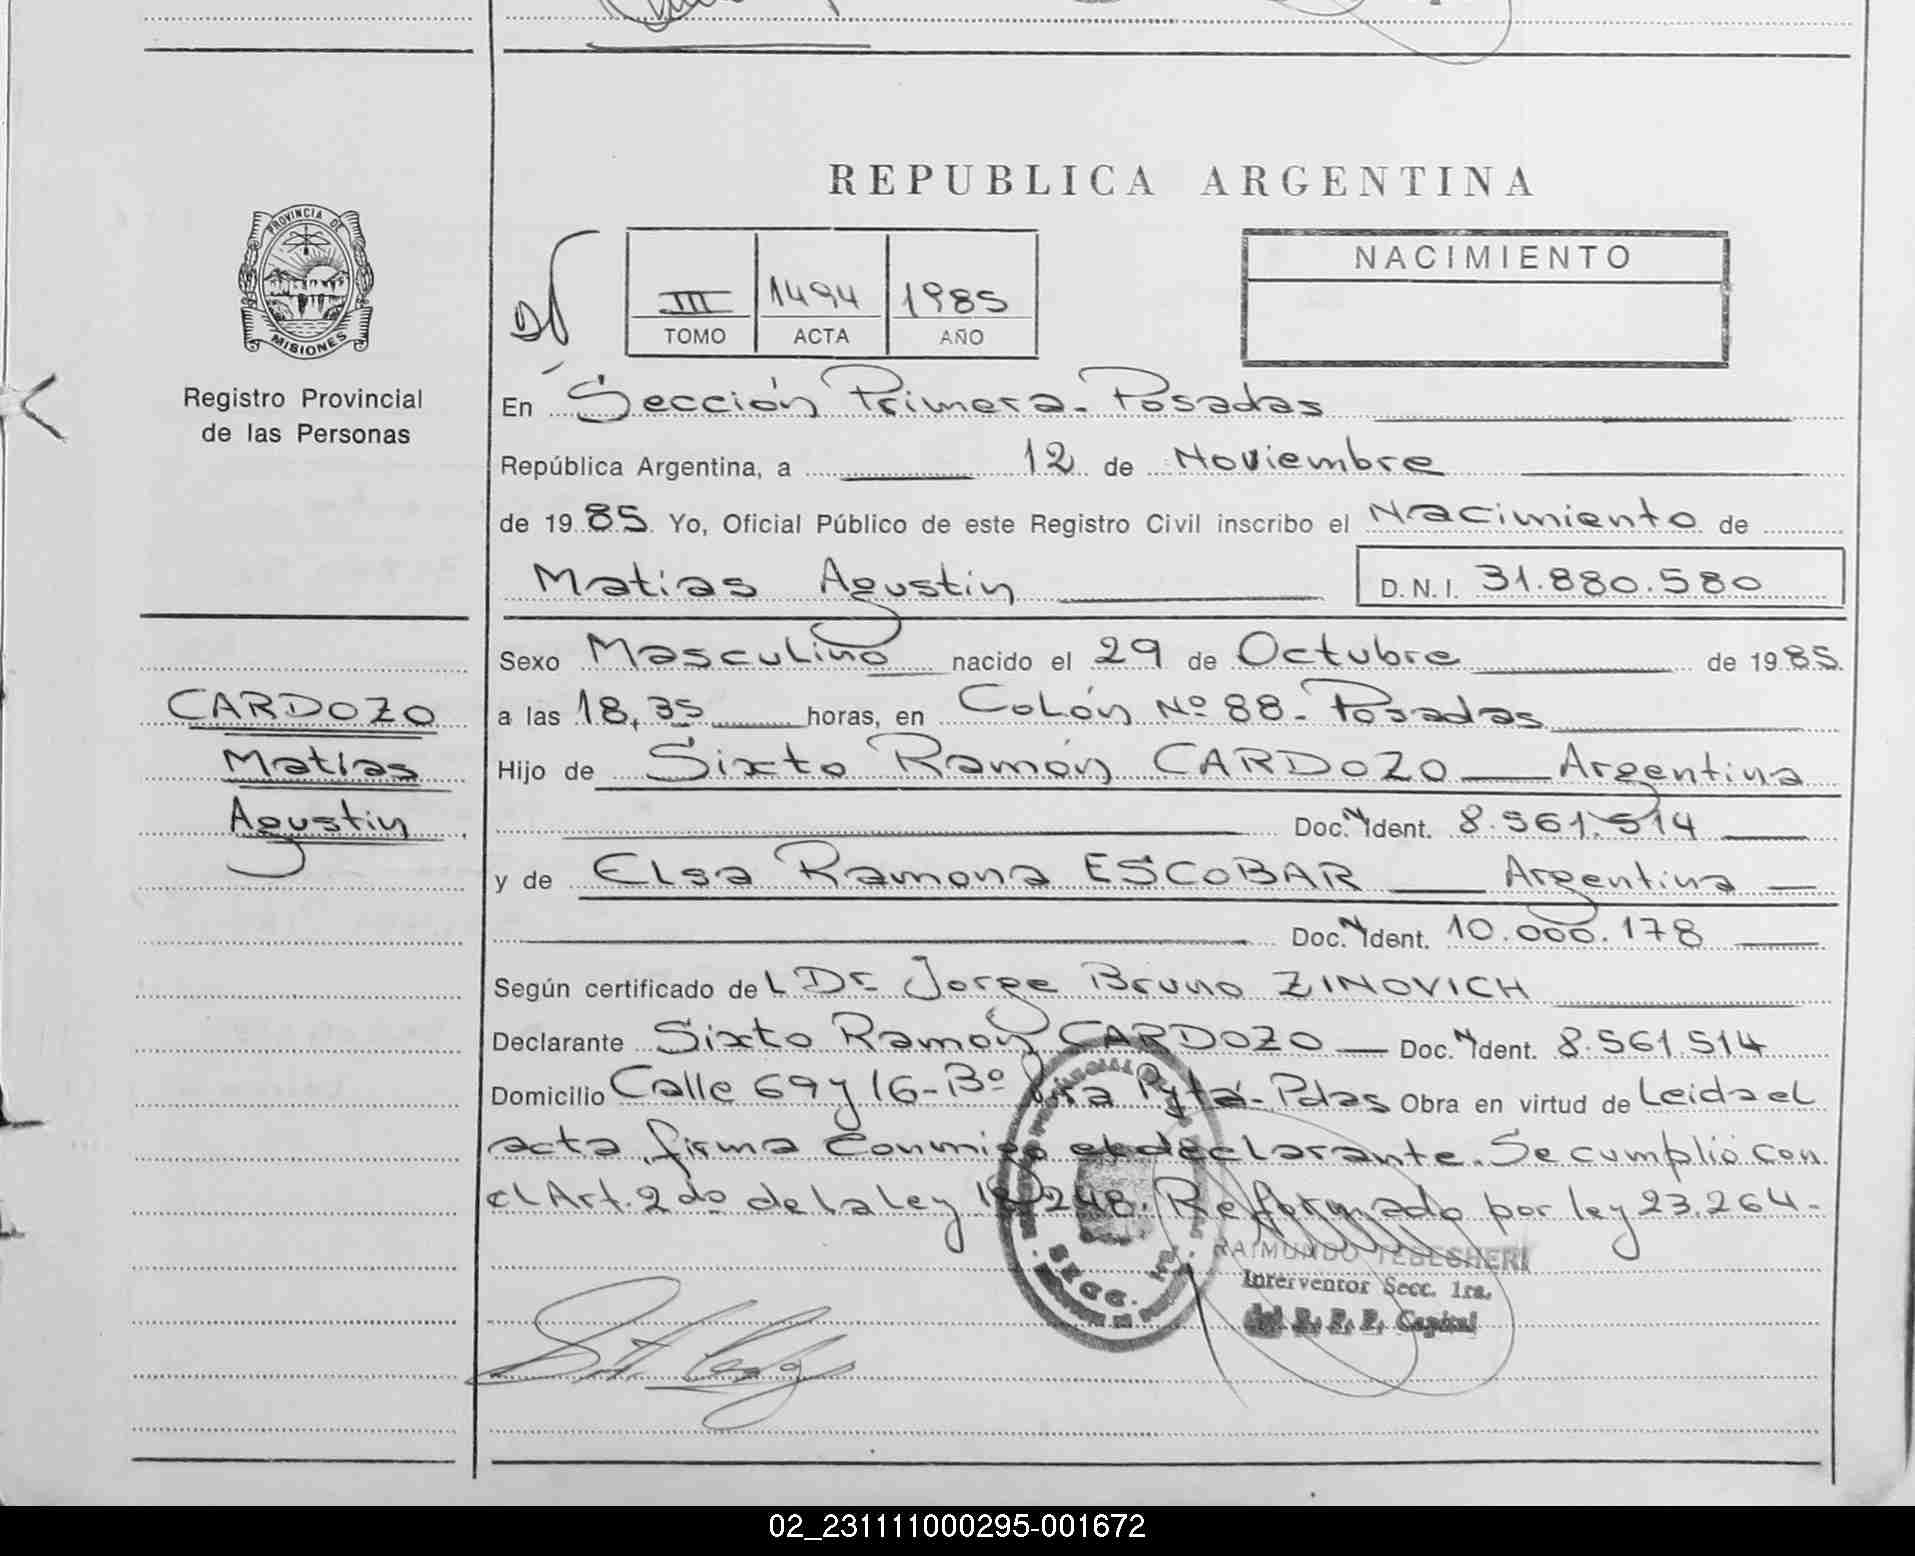 REPUBLICA ARGENTINA
PROVINCIA DE
MISIONES
Registro Provincial
de las Personas
III 1494 1985
TOMO ACTA AÑO
NACIMIENTO
En Sección Primera - Posadas
República Argentina, a 12 de Noviembre
de 1985. Yo, Oficial Público de este Registro Civil inscribo el Nacimiento de
Matias Agustin D.N.I. 31.880.580
Sexo Masculino nacido el 29 de Octubre de 1985.
CARDOZO
Matias
Agustin
a las 18,35 horas, en Colón Nº 88 - Posadas
Hijo de Sixto Ramón CARDOZO Argentina
Doc. N Ident. 8.561.514
y de Elsa Ramona ESCOBAR Argentina
Doc. N Ident. 10.000.178
Según certificado del Dr. Jorge Bruno ZINOVICH
Declarante Sixto Ramón CARDOZO Doc. N Ident. 8.561.514
Domicilio Calle 69 y 16 - Bº Pytá - Pdas Obra en virtud de Leida el
acta, firma conmigo el declarante. Se cumplió con
el Art. 2do de la Ley 18.248. Reformado por ley 23.264.
RAIMUNDO
Interventor Secc. 1ra.
del R. P. P. Capital
SECC.
02_231111000295-001672